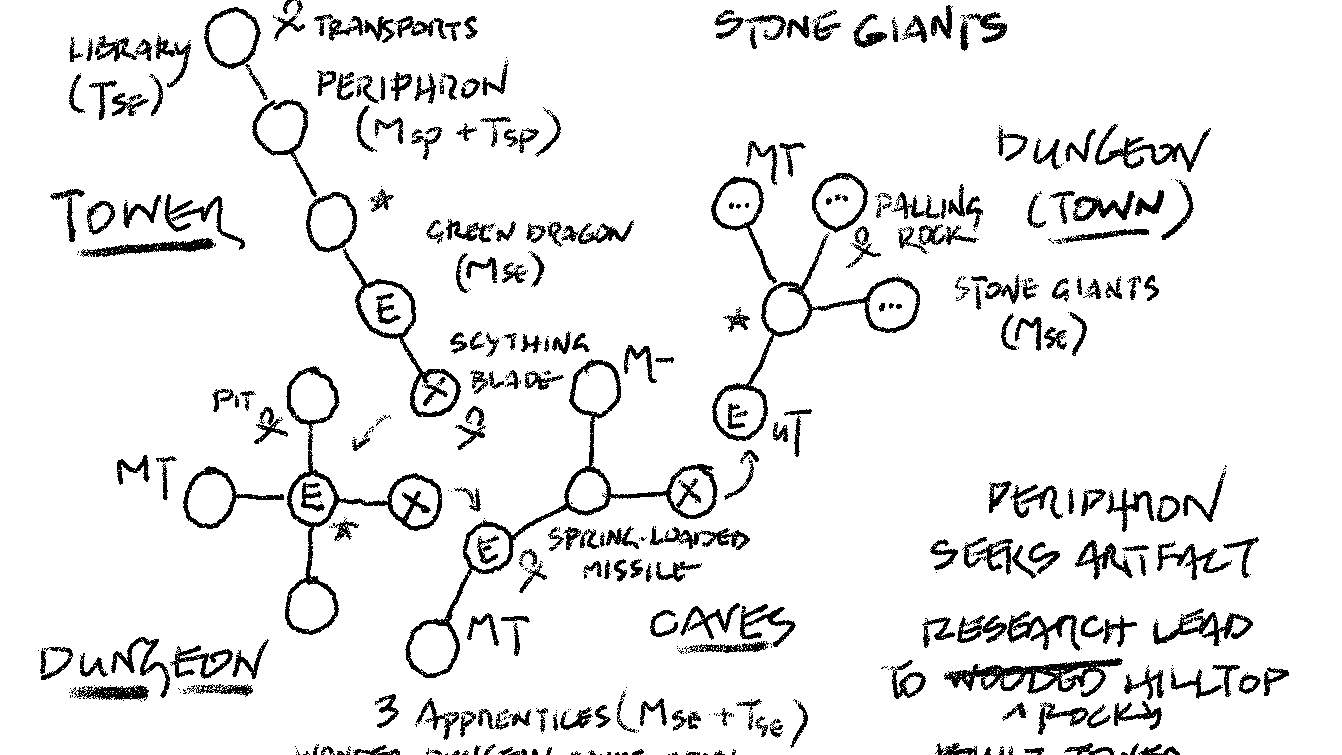 LIBRARY
(TSE)
TRANSPORTS
PERIPHRON
(MSP + TSP)
TOWER
GREEN DRAGON
(MSE)
E
SCYTHING
BLADE
X
STONE GIANTS
DUNGEON
(TOWN)
MT
...
...
FALLING
ROCK
...
STONE GIANTS
(MSE)
E
UT
PIT
MT
E
X
DUNGEON
M-
X
E
SPRING-LOADED
MISSILE
MT
CAVES
3 APPRENTICES (MSE + TSE)
WANDER DUNGEON
PERIPHRON
SEEKS ARTIFACT
RESEARCH LEAD
TO WOODED HILLTOP
^ ROCKY
BUILT TOWER